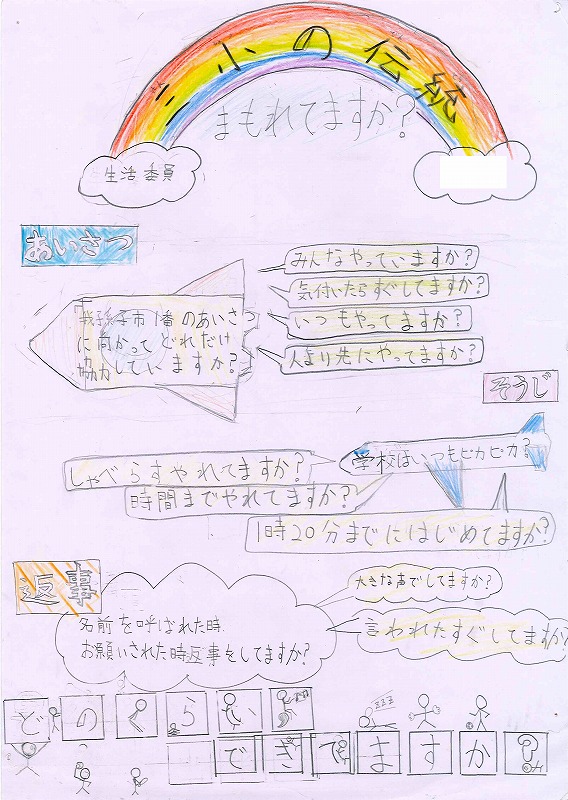 二小の伝統
まもれてますか?
生活委員
あいさつ
みんなやっていますか?
気付いたらすぐしてますか?
いつもやってますか?
人より先にやってますか?
「我孫子市1番のあいさつ」
に向かってどれだけ
協力していますか?
そうじ
学校はいつもピカピカ?
しゃべらずやれてますか?
時間までやれてますか?
1時20分までにはじめてますか?
返事
大きな声でしてますか?
名前を呼ばれた時、
お願いされた時返事をしてますか?
言われたすぐしてますか?
どのくらい
できてますか?